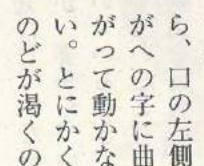 ら、口の左側
がへの字に曲
がって動かな
い。とにかく
のどが渇くの